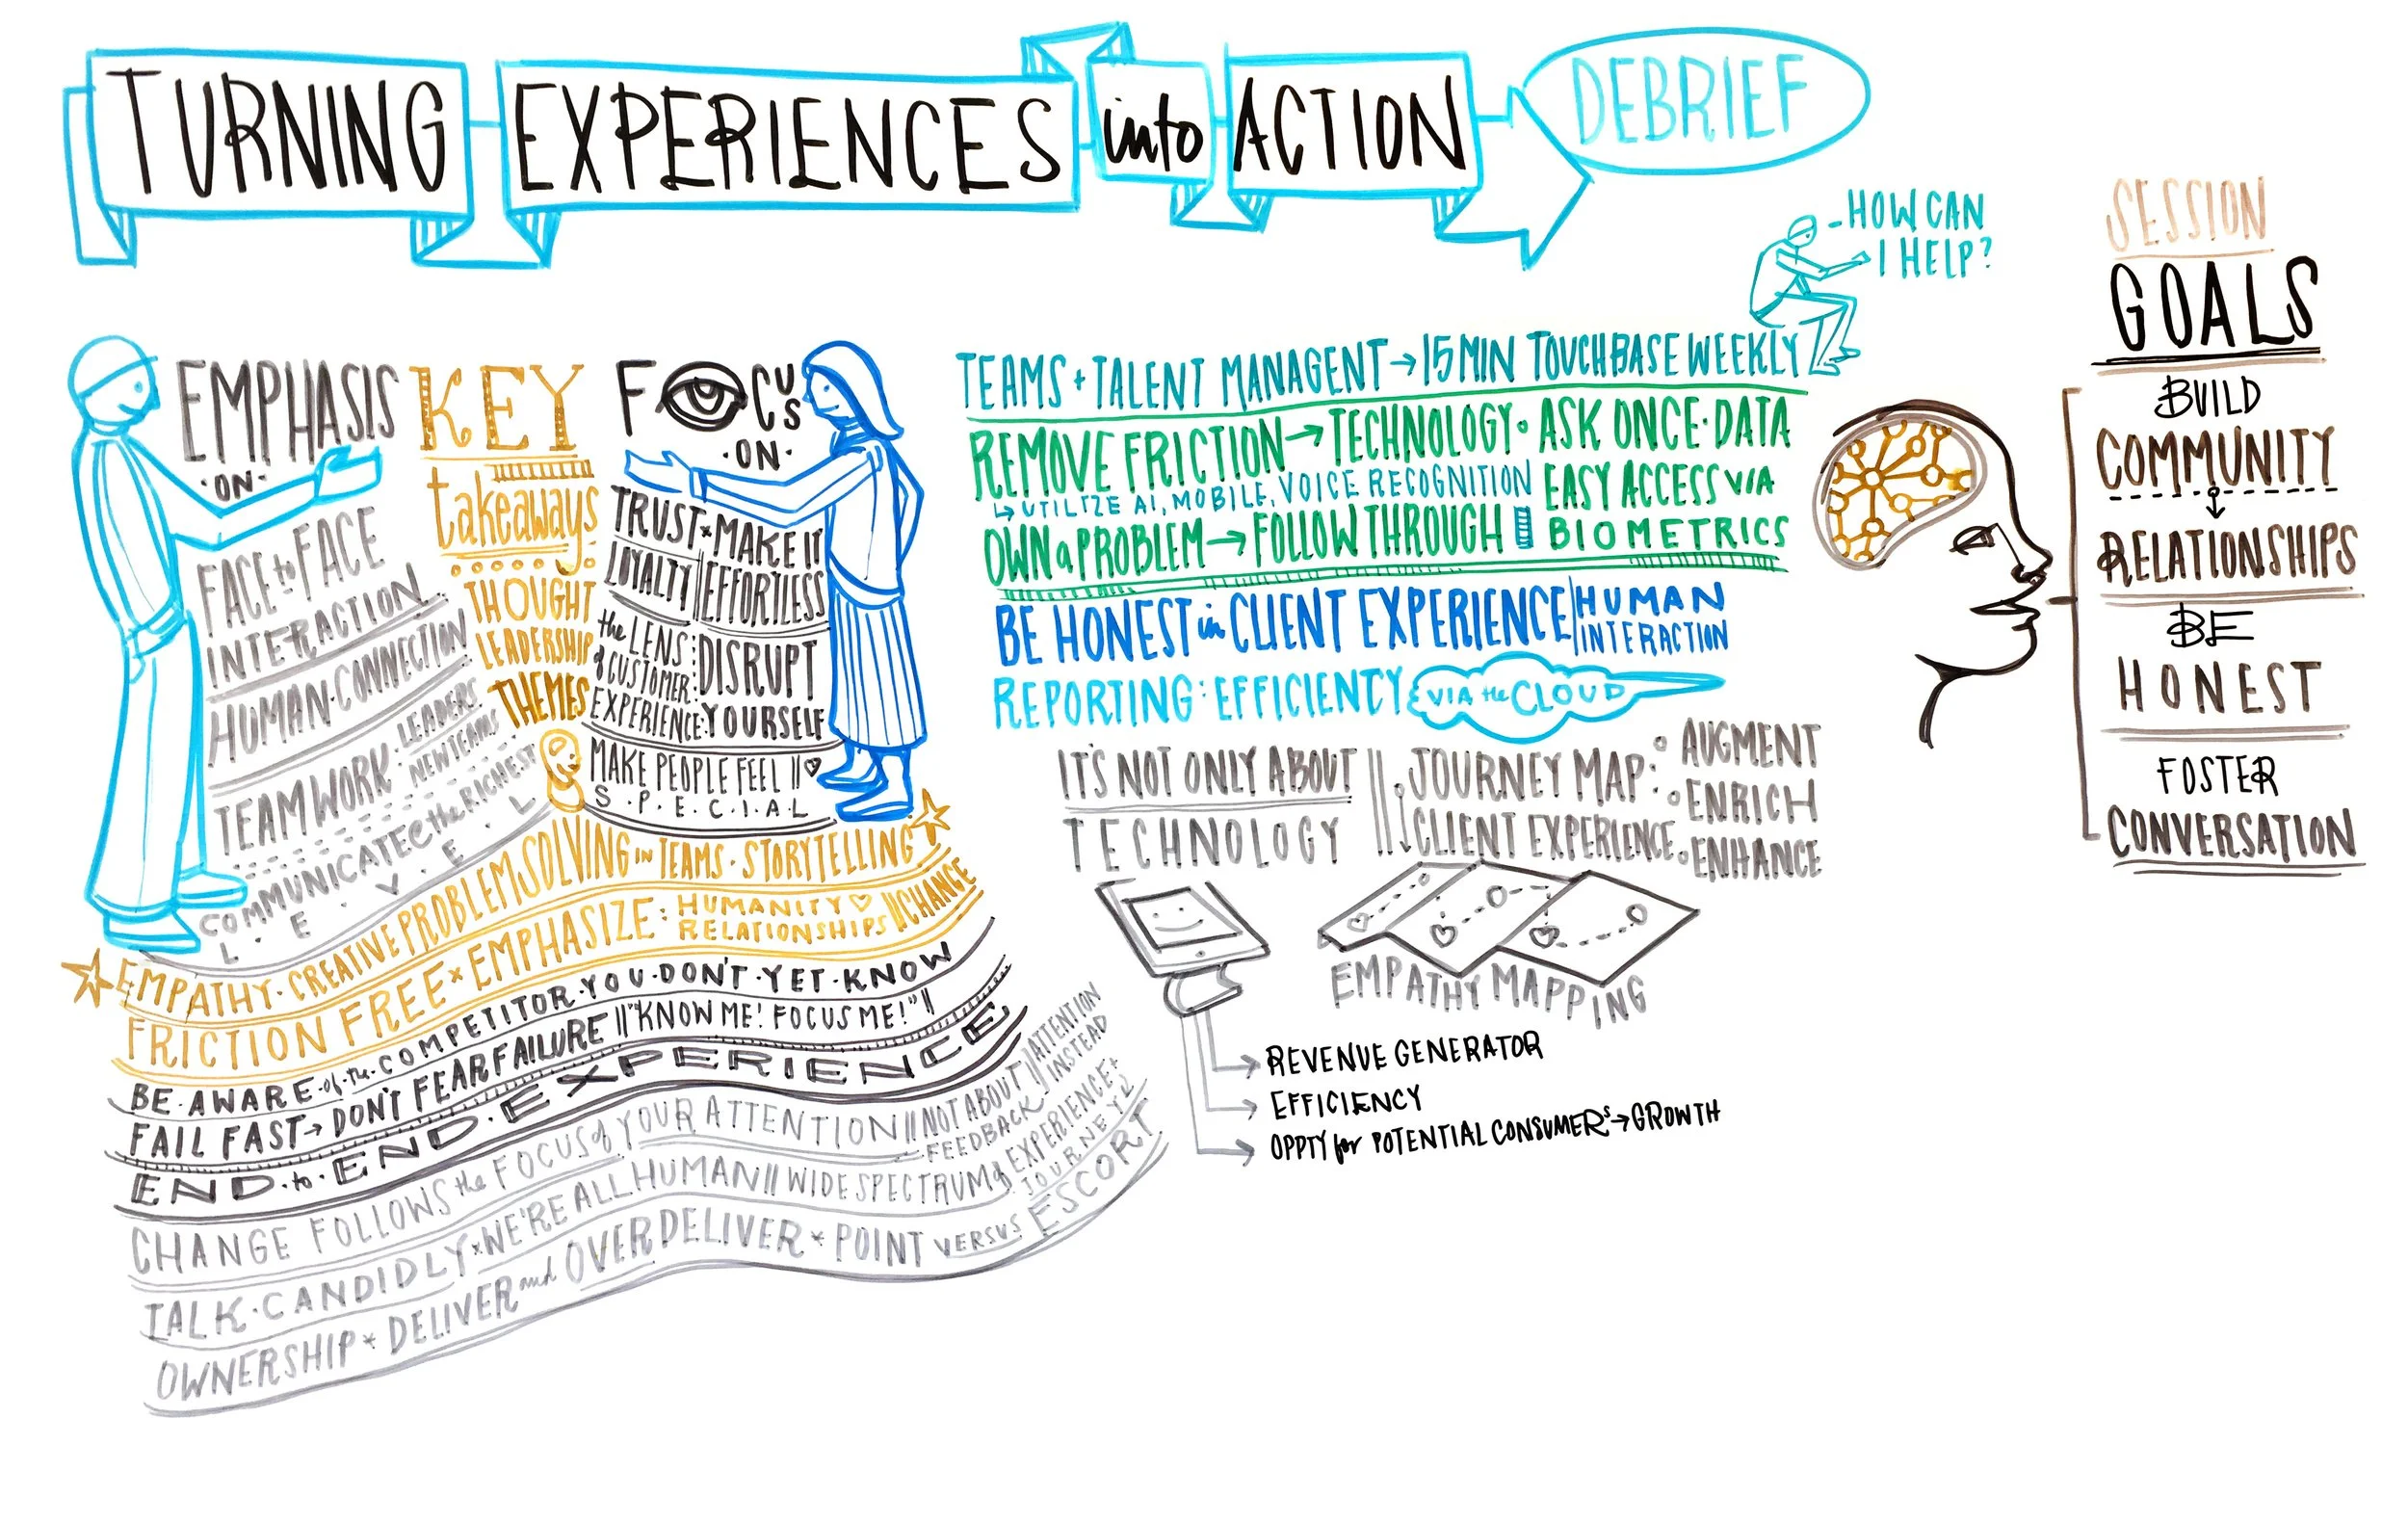 TURNING EXPERIENCES into ACTION DEBRIEF
-HOW CAN
I HELP?
EMPHASIS
·ON·
FACE to FACE
INTERACTION
HUMAN·CONNECTION
TEAMWORK: LEADERS
NEW TEAMS
COMMUNICATE @ the RICHEST
L·E·V·E·L
KEY
takeaways
THOUGHT
LEADERSHIP
THEMES
FOCUS
·ON·
TRUST × MAKE IT
LOYALTY EFFORTLESS
the LENS of CUSTOMER EXPERIENCE: DISRUPT YOURSELF
MAKE PEOPLE FEEL
S·P·E·C·I·A·L
EMPATHY· CREATIVE PROBLEM SOLVING IN TEAMS · STORYTELLING
FRICTION FREE × EMPHASIZE: HUMANITY RELATIONSHIPS CHANGE
BE·AWARE·of·the·COMPETITOR·YOU·DON'T·YET·KNOW
FAIL FAST → DON'T FEAR FAILURE "KNOW ME! FOCUS ME!"
END·to·END·EXPERIENCE
CHANGE FOLLOWS the FOCUS of YOUR ATTENTION NOT ABOUT FEEDBACK ATTENTION INSTEAD
TALK·CANDIDLY × WE'RE ALL HUMAN WIDE SPECTRUM of EXPERIENCE + JOURNEY
OWNERSHIP * DELIVER and OVERDELIVER * POINT VERSUS ESCORT
TEAMS + TALENT MANAGENT → 15 MIN TOUCHBASE WEEKLY
REMOVE FRICTION → TECHNOLOGY· ASK ONCE· DATA
↳ UTILIZE AI, MOBILE, VOICE RECOGNITION EASY ACCESS VIA
OWN a PROBLEM → FOLLOW THROUGH BIOMETRICS
BE HONEST in CLIENT EXPERIENCE HUMAN INTERACTION
REPORTING: EFFICIENCY VIA the CLOUD
IT'S NOT ONLY ABOUT
TECHNOLOGY
JOURNEY MAP:
CLIENT EXPERIENCE
AUGMENT
ENRICH
ENHANCE
EMPATHY MAPPING
REVENUE GENERATOR
EFFICIENCY
OPPTY for POTENTIAL CONSUMERS → GROWTH
SESSION
GOALS
BUILD
COMMUNITY
RELATIONSHIPS
BE
HONEST
FOSTER
CONVERSATION